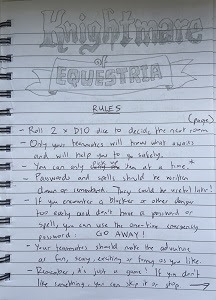 Knightmare
of
EQUESTRIA
RULES
(page)
- Roll 2 x D10 dice to decide the next room
- Only your teammates will know what awaits
and will help you to go safely.
- You can only at a time.*
- Passwords and spells should be written
down or remembered. They could be useful later!
- If you encounter a blocker or other danger
too early and don't have a password or
spell, you can use the one-time emergency
password: GO AWAY!
- Your teammates should make the adventure
as fun, scary, exciting or tricky as you like.
- Remember, it's just a game! If you don't
like something, you can skip it or stop →